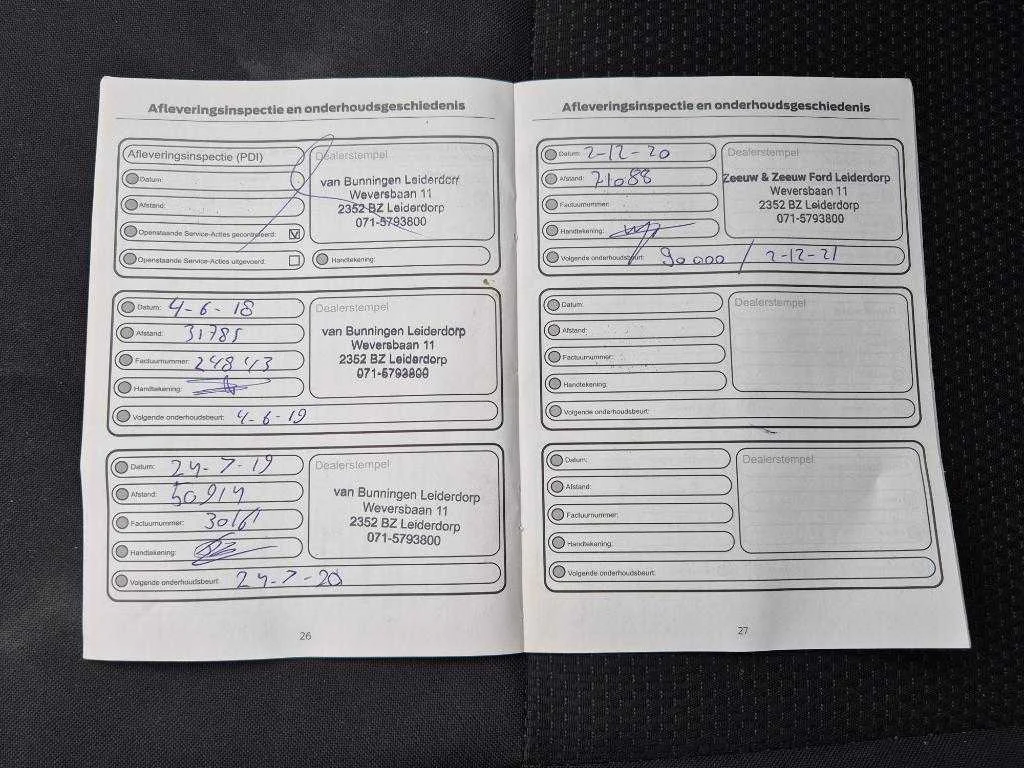 Afleveringsinspectie en onderhoudsgeschiedenis
Afleveringsinspectie (PDI)
Datum:
Afstand:
Openstaande Service-Acties gecontroleerd: V
Openstaande Service-Acties uitgevoerd:
Dealerstempel
van Bunningen Leiderdorp
Weversbaan 11
2352 BZ Leiderdorp
071-5793800
Handtekening:
Datum: 4-6-18
Afstand: 31785
Factuurnummer: 24843
Handtekening:
Dealerstempel
van Bunningen Leiderdorp
Weversbaan 11
2352 BZ Leiderdorp
071-5793800
Volgende onderhoudsbeurt: 4-6-19
Datum: 24-7-19
Afstand: 50914
Factuurnummer: 30161
Handtekening:
Dealerstempel
van Bunningen Leiderdorp
Weversbaan 11
2352 BZ Leiderdorp
071-5793800
Volgende onderhoudsbeurt: 24-7-20
26
Afleveringsinspectie en onderhoudsgeschiedenis
Datum: 2-12-20
Afstand: 71088
Factuurnummer:
Handtekening:
Dealerstempel
Zeeuw & Zeeuw Ford Leiderdorp
Weversbaan 11
2352 BZ Leiderdorp
071-5793800
Volgende onderhoudsbeurt: 90000 / 2-12-21
Datum:
Afstand:
Factuurnummer:
Handtekening:
Dealerstempel
Volgende onderhoudsbeurt:
Datum:
Afstand:
Factuurnummer:
Handtekening:
Dealerstempel
Volgende onderhoudsbeurt:
27